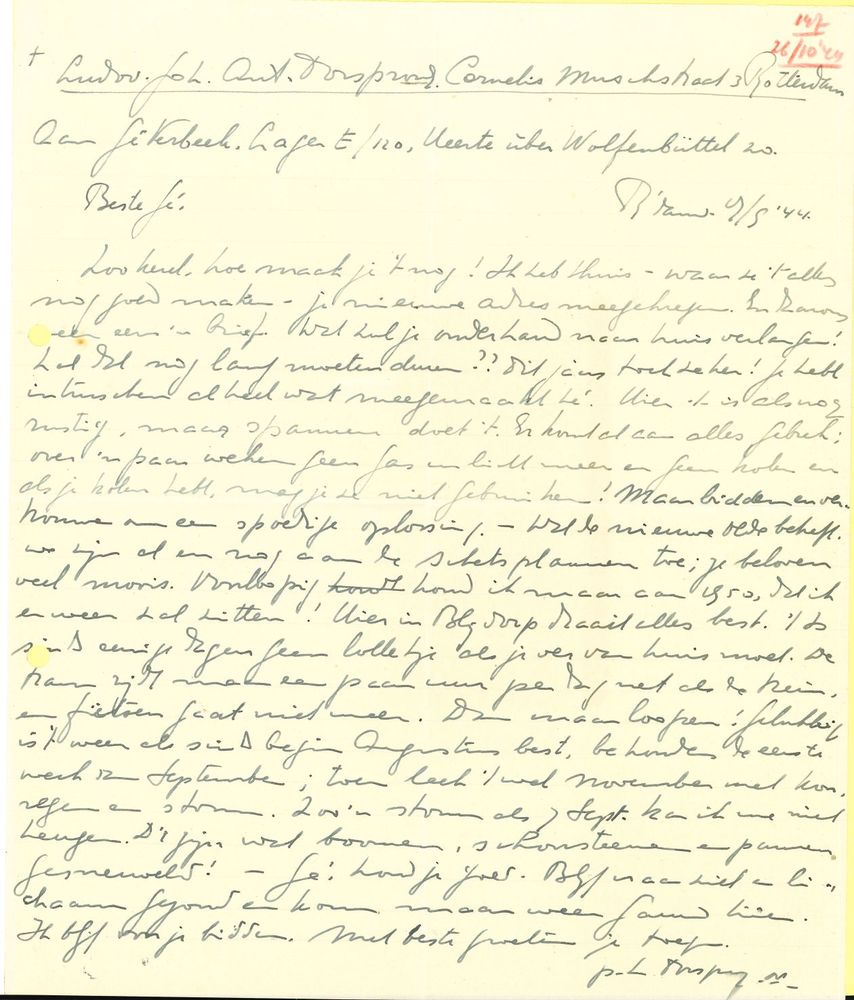 147
26/10 '44
† Ludov. Joh. Ant. Cornelis Musschstraat 3 Rotterdam
Aan Gé Verbeek. Lager E/120, Ueerte über Wolfenbüttel 20.
Beste Gé. R'dam. /9 '44.
Zoo kerel, hoe maak je 't nog! Ik heb thuis - waar ze 't alles
nog goed maken - je nieuwe adres meegekregen. En daarom
weer eens 'n brief. Wat zul je onderhand naar huis verlangen!
Zal dat nog lang moeten duren?? Dit jaar toch zeker! Je hebt
intusschen al heel wat meegemaakt Gé. Hier 't is alsnog
rustig, maar spannen doet 't. Er komt al aan alles gebrek;
over 'n paar weken geen gas en licht meer en geen kolen en
als je kolen hebt, mag je ze niet gebruiken! Maar bidden en ver-
trouwen op een spoedige oplossing. - Wat de nieuwe betreft.
we zijn al en nog aan de schetsplannen toe; ze beloven
veel moois. Voorloopig houd ik maar aan 1950, dat ik
er weer zal zitten! Hier in Blijdorp draait alles best. 't Is
sinds eenige dagen geen lolletje als je ver van huis moet. De
tram rijdt maar een paar uur per dag net als de trein,
en fietsen gaat niet meer. Dan maar loopen! Gelukkig
is 't weer als sinds begin Augustus best, behouden de eerste
week van September; toen leek 't wel November met
regen en storm. Zoo'n storm als 7 Sept. kan ik me niet
heugen. D'r zijn wat boomen, schoorsteenen en pannen
gesneuveld! - Gé, houd je goed. Blijf naar ziel en li-
chaam gezond en kom maar weer gauw hier.
Ik blijf voor je bidden. Met beste groeten je toegen.
p. L.